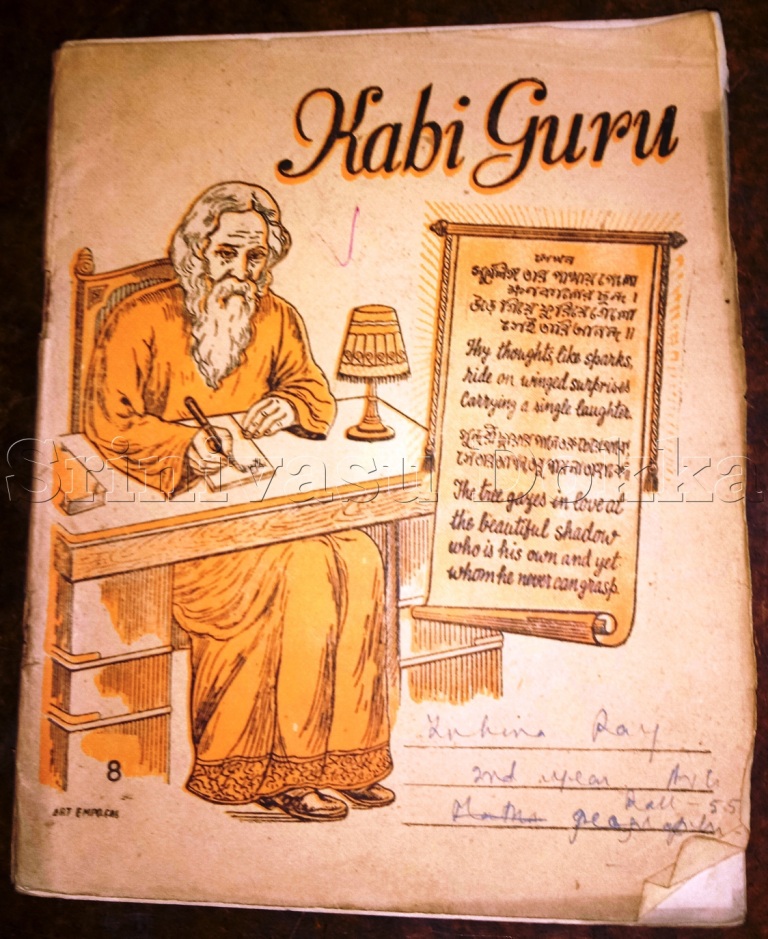 Kabi Guru
তার পাখায় পেলো
ক্ষণকালের ছন্দ ।
উড়ে গিয়ে ফুরিয়ে গেলো
সেই তারি আনন্দ ॥
Thy thoughts, like sparks,
ride on winged surprises
Carrying a single laughter.
The tree gazes in love at
the beautiful shadow
who is his own and yet
whom he never can grasp.
Srinivasu Dokka
Ray
2nd year
Roll - 55
Maths geography
8
ART EMPO.CAL